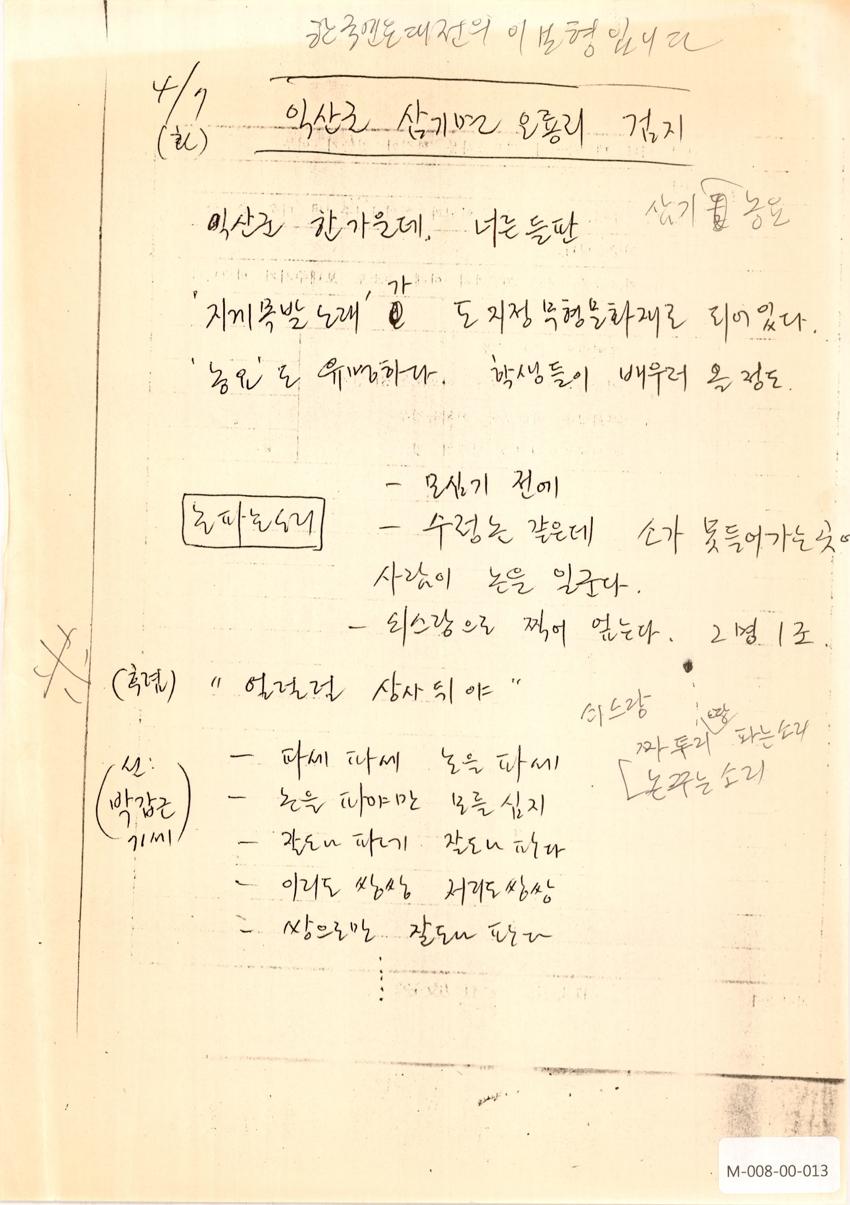 한국민요대전의 이보형입니다
4/7
(화)
익산군 삼기면 오룡리 검지
익산군 한가운데. 너른들판
삼기 농요
'지게목발노래'가 도지정 무형문화재로 되어있다.
'농요'도 유명하다. 학생들이 배우러 올 정도.
논파는소리
- 모심기 전에
- 수렁논 같은데 소가 못들어가는 곳에
사람이 논을 일군다.
- 쇠스랑으로 찍어 엎는다. 2명 1조.
(후렴) " 얼럴럴 상사뒤야 "
쇠스랑
짜투리 땅 파는소리
논꾸는소리
선:
박갑근
기씨
- 파세 파세 논을 파세
- 논을 파야만 모를 심지
- 잘도나 파네 잘도나 판다
- 이리도 쌍쌍 저리도 쌍쌍
- 쌍으로만 잘도나 판다
M-008-00-013